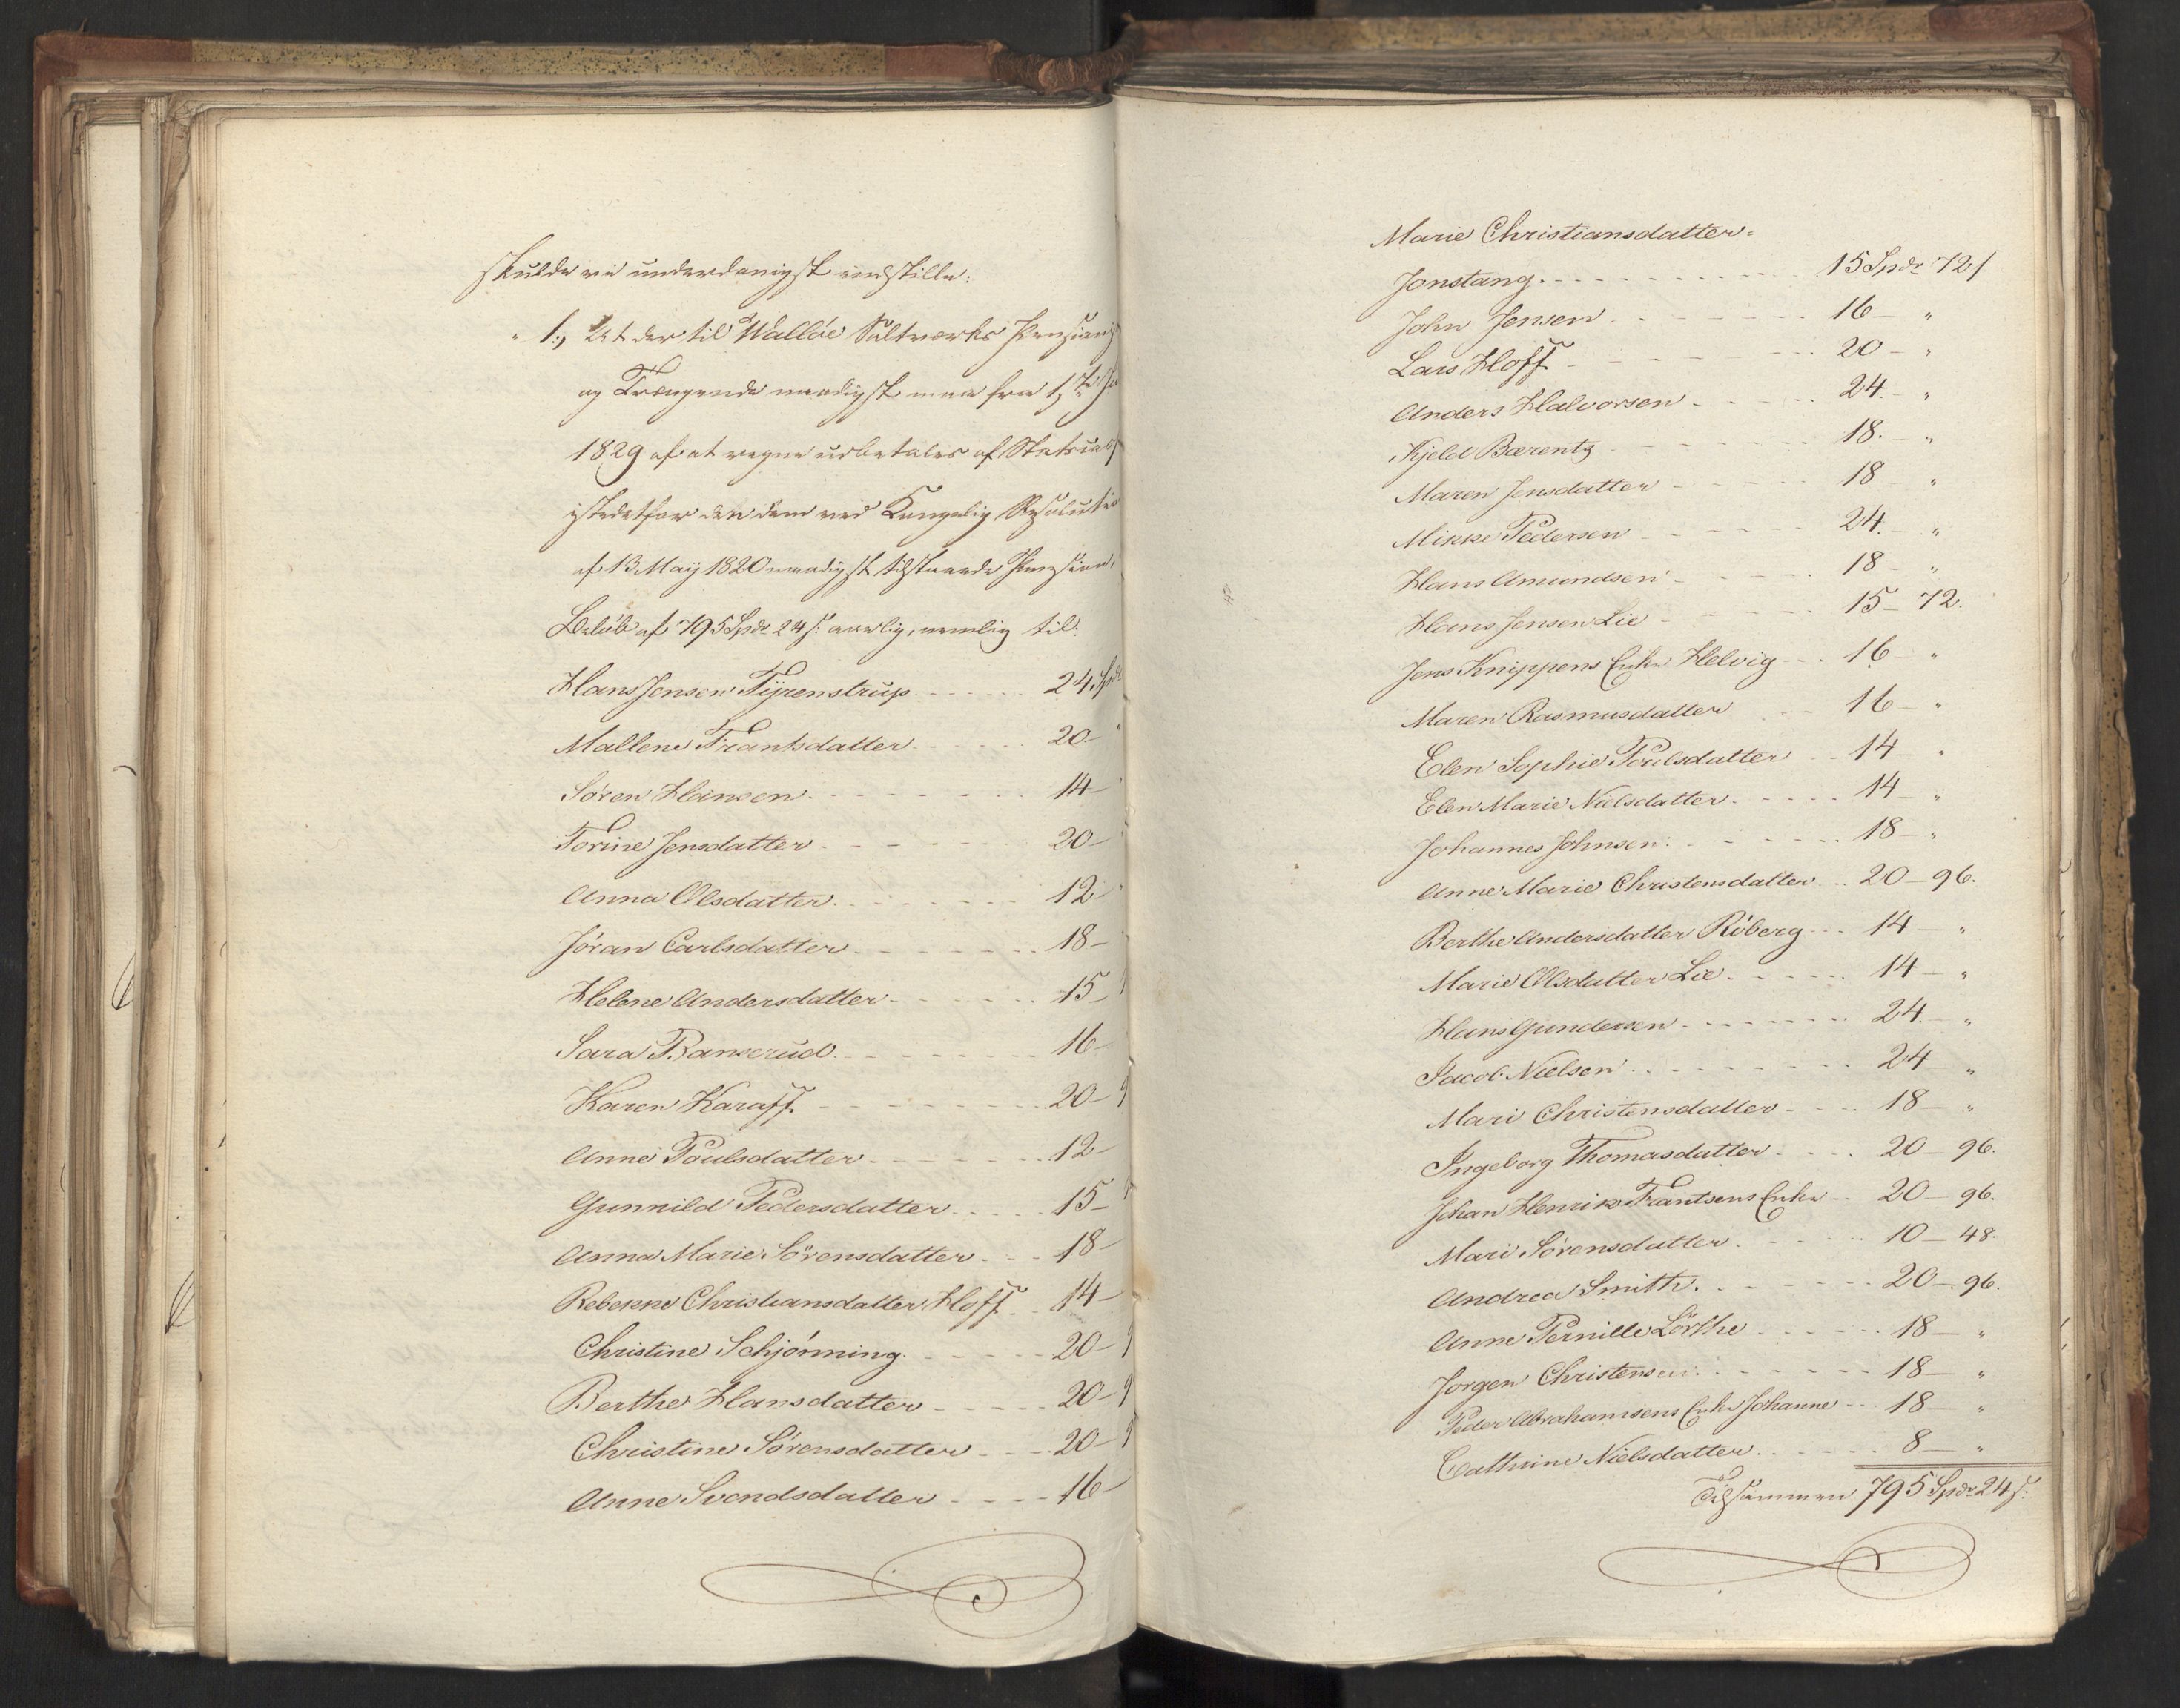 skulde vi underdanigst indstille:
" 1.) At der til Walløe Saltværks Pensions
og Trængende naadigst maa fra 1ste
1829 af at regne udbetales af Statscas
istedetfor den dem ved Kongelig Resolution
af 13 May 1820 naadigst tilstaaede Pensions
Beløb af 795 Spdr 24 s. aarlig, nemlig til:
Hans Jensen Fyrenstrup 24 Spdr
Mallene Frantsdatter 20 "
Søren Hansen 14 –
Torine Jensdatter 20 –
Anna Olsdatter 12 –
Jöran Carlsdatter 18 –
Helene Andersdatter 15 –
Sara Banserud 16 –
Karen Karaff 20 – 9
Anne Poulsdatter 12 –
Gunnild Pedersdatter 15 –
Anna Marie Sörensdatter 18 –
Rebekke Christiansdatter Hoff 14 –
Christine Schjönning 20 – 9
Berthe Hansdatter 20 – 9
Christine Sörensdatter 20 – 9
Anne Svendsdatter 16 –
Marie Christiansdatter=
Jonstang 15 Spdr 72 s
John Jensen 16 – "
Lars Hoff 20 – "
Anders Halvorsen 24 – "
Kjeld Bærentz 18 – "
Maren Jensdatter 18 "
Mikke Pedersen 24 – "
Hans Amundsen 18 – "
Hans Jensen Lie 15 – 72.
Jens Knippens Enke Helvig 16 – "
Maren Rasmusdatter 16 – "
Elen Sophie Poulsdatter 14 – "
Elen Marie Nielsdatter 14 – "
Johannes Johnsen 18 – "
Anne Marie Christensdatter 20 – 96.
Berthe Andersdatter Röberg 14 – "
Marie Olsdatter Lie 14 – "
Hans Gundersen 24 – "
Jacob Nielsen 24 "
Mari Christensdatter 18 – "
Ingeborg Thomasdatter 20 – 96.
Johan Henrik Frantsens Enke 20 – 96.
Mari Sörensdatter 10 – 48.
Andrea Smith 20 – 96.
Anne Pernille Lörthe 18 – "
Jorgen Christensen 18 – "
Peder Abrahamsens Enke Johanne 18 – "
Cathrine Nielsdatter 8 – "
Tilsammen 795 Spdr 24 s.